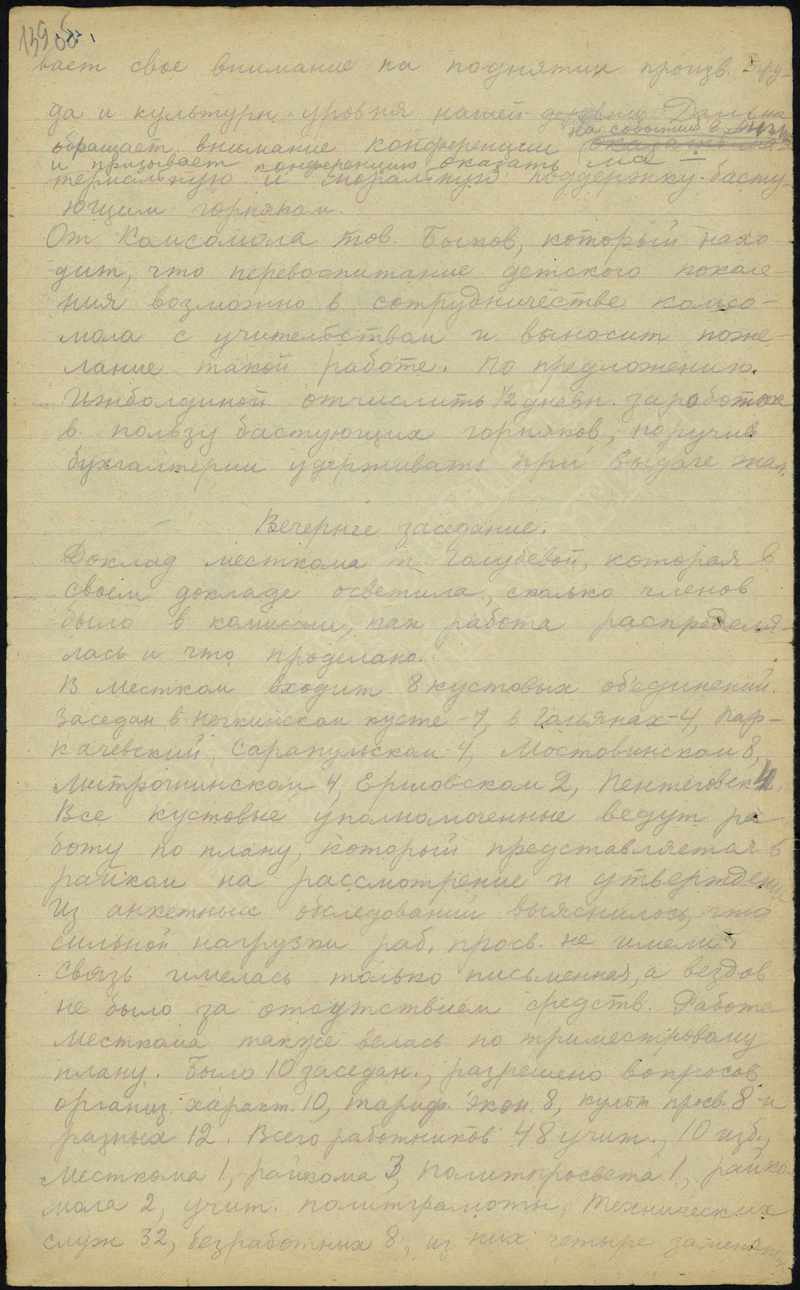 139об.
вает свое внимание на поднятии произв. тру-
да и культурн. уровня нашей деревни. Далее
на события в
обращает внимание конференции
и призывает конференцию оказать ма-
териальную и моральную поддержку басту-
ющим горнякам.
От Комсомола тов. Быков, который нахо-
дит, что перевоспитание детского поколе-
ния возможно в сотрудничестве комсо-
мола с учительством и выносит поже-
лание такой работе. По предложению
Ижболдиной отчислить 1/2 дневн. заработок
в пользу бастующих горняков, поручив
бухгалтерии удерживать при выдаче жал.
Вечернее заседание.
Доклад месткома т. Голубевой, которая в
своем докладе осветила, сколько членов
было в комиссии, как работа распределя-
лась и что проделано.
В местком входит 8 кустовых объединений.
Заседан. в кусте -7, в Гальянах-4, Пар-
качевский, Сарапульском 4, Мостовинском 8,
Митрошинском 4, Ершовском 2, 4
Все кустовые уполномоченные ведут ра-
боту по плану, который представляется в
райком на рассмотрение и утверждение
Из анкетных обследований выяснилось, что
сильной нагрузки раб. просв. не имели
связь имелась только письменная, а вездов
не было за отсутствием средств. Работа
месткома также велась по триместровому
плану. Было 10 заседан., разрешено вопросов
организ. характ. 10, тариф. экон. 8, культ. просв. 8 и
разных 12. Всего работников 48 учит., 10 избу,
месткома 1, райкома 3, политпросвета 1, райко-
мола 2, учит. политграмоты, технических
служ 32, безработных 8, из них четыре